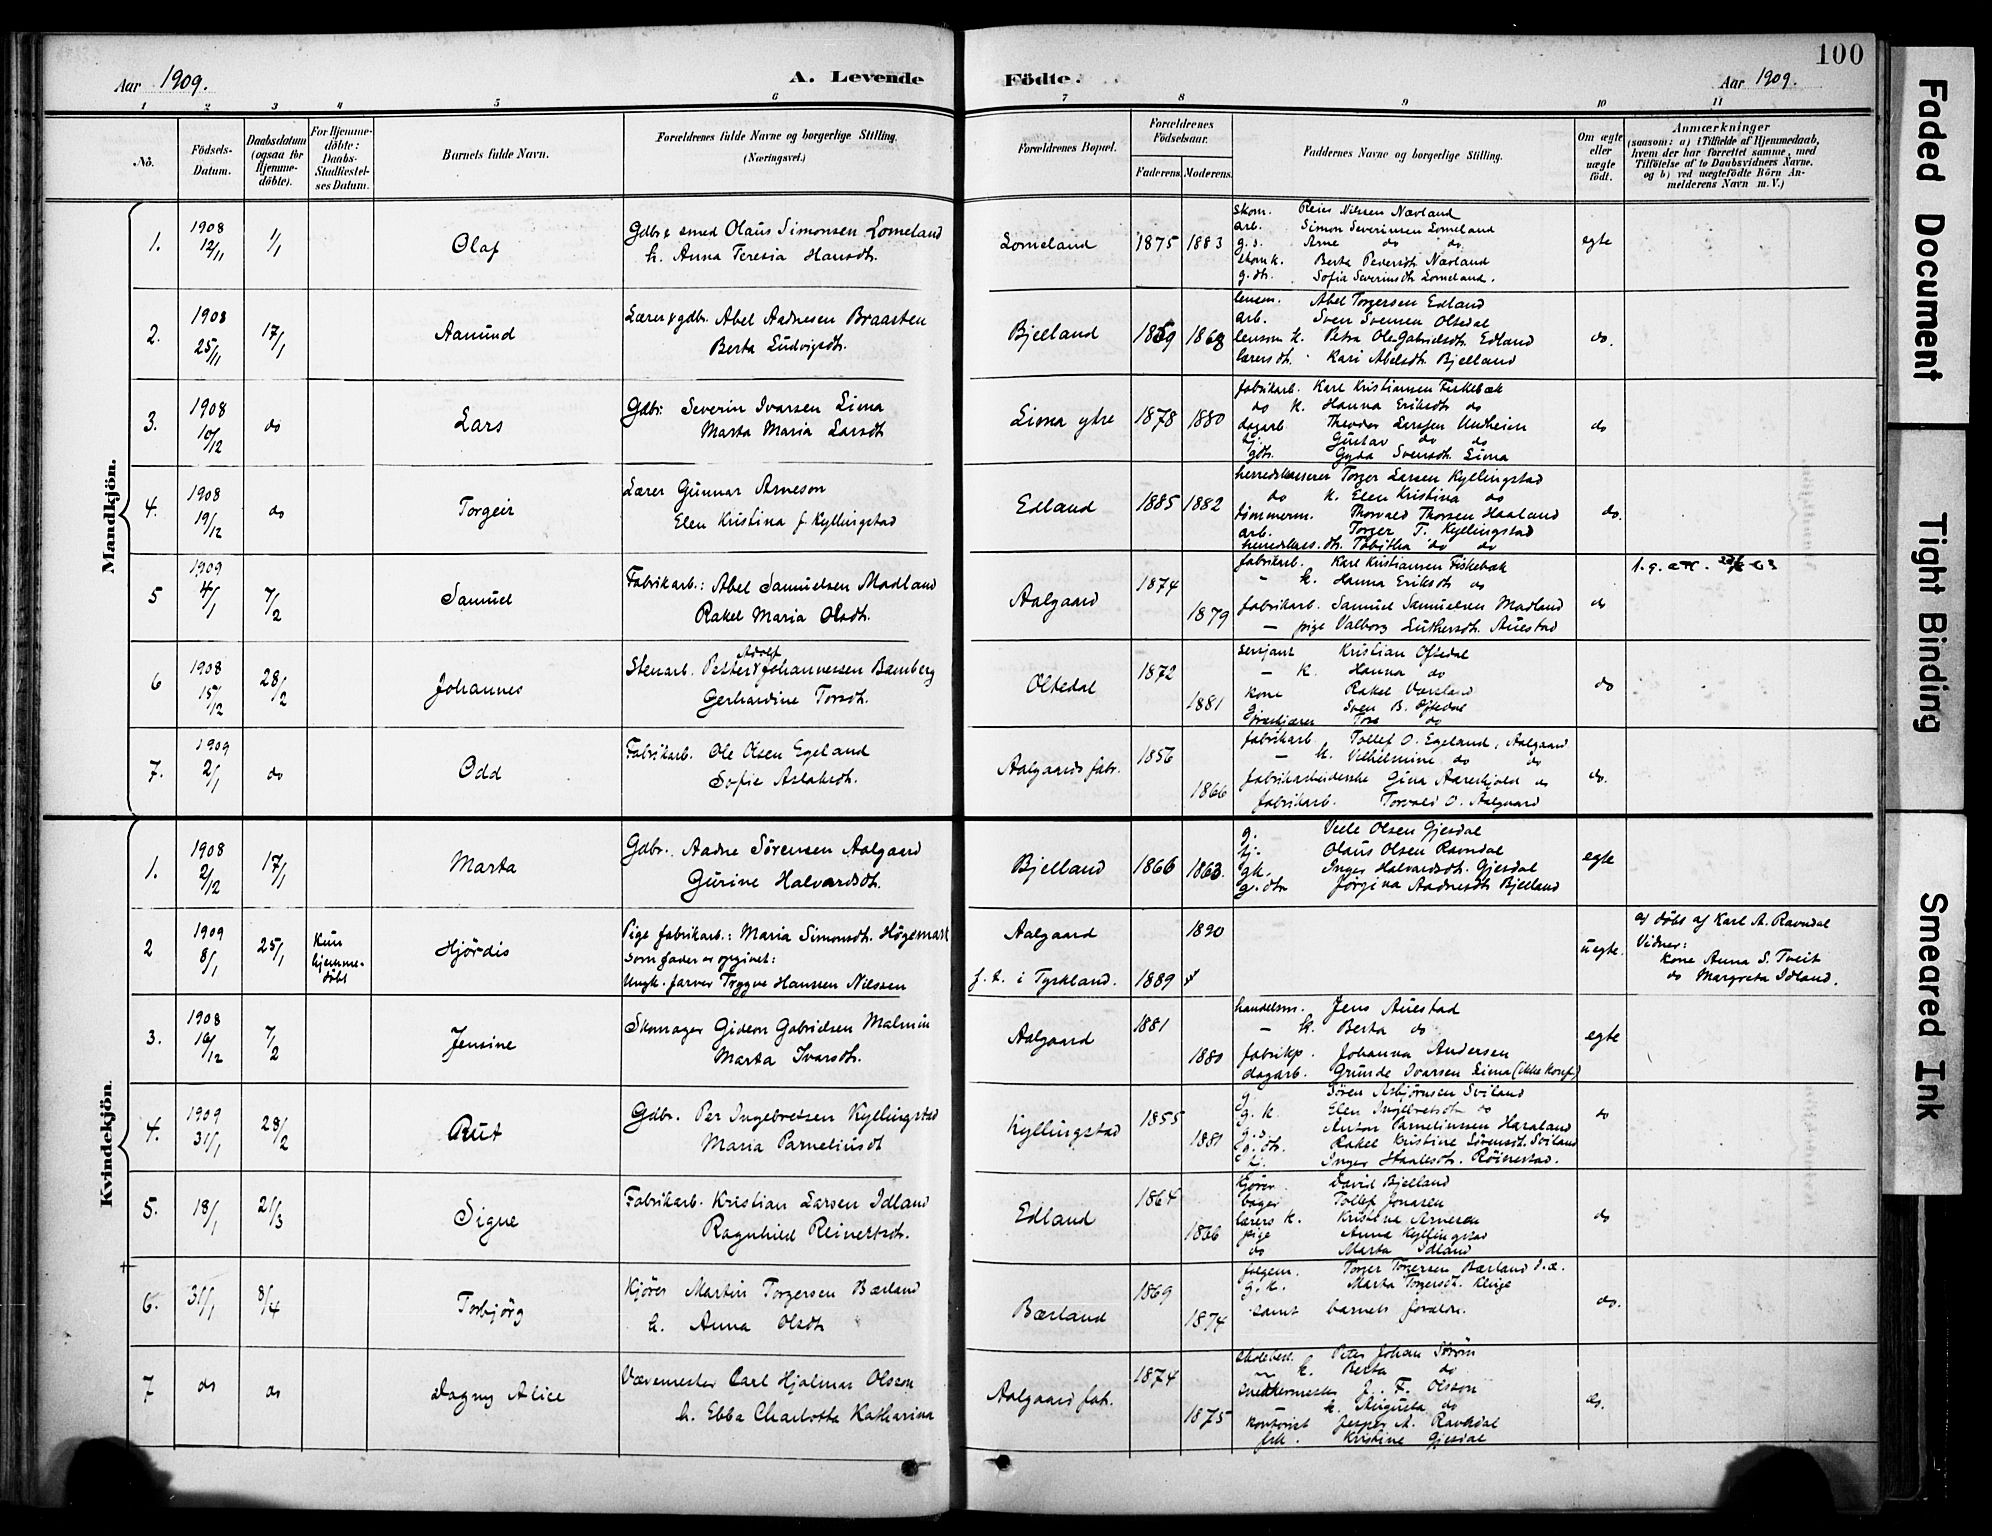 100
Aar 1909. A. Levende Födte. Aar 1909.
1 2 3 4 5 6 7 8 9 10 11
No.
Födsels-Datum.
Daabsdatum (ogsaa for Hjemme-döbte).
For Hjemme-döbte: Daabs-Stadfæstel-ses Datum.
Barnets fulde Navn.
Forældrenes fulde Navne og borgerlige Stilling.
(Næringsvei.)
Forældrenes Bopæl.
Forældrenes Födselsaar.
Faderens. Moderens.
Faddernes Navne og borgerlige Stilling.
Om ægte eller uægte födt.
Anmærkninger
(saasom: a) i Tilfælde af Hjemmedaab,
hvem der har forrettet samme, med
Tilföielse af to Daabsvidners Navne.
og b) ved uægtefödte Börn An-
melderens Navn m. V.)
Mandkjön.
1. 1908 12/11 1/1 Olaf
Gdbr & smed Olaus Simonsen Lomeland
h. Anna Teresia Hansdtr.
Lomeland 1875 1883
Skom. Reier Nilssen Nærland
arb. Simon Severinsen Lomeland
g.s. Arne do do
skom k. Berta Pedersdtr Nærland
g.dtr. Sofia Severinsdtr Lomeland.
egte
2. 1908 25/11 17/1 Aamund
Lærer & gdbr. Abel Aadnesen Braasten
Berta Ludvigsdtr.
Bjelland 1859 1868
lensm. Abel Torgersen Edland
arb. Sven Svensen Oltedal
lensm k. Petra Ole-Gabrielsdtr Edland
lærersdtr. Kari Abelsdtr Bjelland
do.
3. 1908 10/12 do Lars
Gdbr: Severin Ivarsen Lima
Marta Maria Larsdtr
Lima ytre 1878 1880
fabrikarb. Karl Kristiansen Fiskebæk
do k. Hanna Eriksdtr do
dagarb. Theodor Larssen Undheim
Gustav do do
gdtr. Gyda Svensdtr Lima
do
4. 1908 19/12 do Torgeir
Lærer Gunnar Arneson
Elen Kristina f. Kyllingstad
Edland 1885 1882
herredskasserer Torger Larsen Kyllingstad
do k. Elen Kristina do
tömmerm. Thorvald Thorsen Haaland
arb. Torger T. Kyllingstad
herredskass. dtr. Tabitha do do
do.
5 1909 4/1 7/2 Samuel
Fabrikarb.: Abel Samuelsen Madland
Rakel Maria Olsdtr.
Aalgaard 1874 1879
fabrikarb. Karl Kristiansen Fiskebæk
– k. Hanna Eriksdtr do
fabrikarb. Samuel Samuelsen Madland
– pige Valborg Luthersdtr. Auestad
do
6 1908 15/12 28/2 Johannes
Stenarb. Petter Adolf Johannessen Bamberg
Gerhardine Torsdtr.
Oltedal 1872 1881
sersjant Kristian Oftedal
– k. Hanna do
kone Rakel
Sven B. Oftedal
Tore do
do
7. 1909 2/1 do Odd
Fabrikarb. Ole Olsen Egeland
Sofie Aslaksdtr.
Aalgaards fabr. 1856 1866
fabrikarb. Tollef O. Egeland, Aalgaard
– k. Vilhelmine do do
fabrikarbeiderske Gina do
fabrikarb. Torvald O. Aalgaard
do.
Kvindekjön.
1. 1908 2/12 17/1 Marta
Gdbr. Aadne Sörensen Aalgaard
Gurine Halvardsdtr.
Bjelland 1866 1863.
g. Veele Olsen Gjesdal
tj. Olaus Olsen Ravndal
gk. Inger Halvardsdtr. Gjesdal
g.dtr Jörgina Aadnesdtr Bjelland
egte
2 1909 8/1 25/1 Kun hjemme-döbt Hjördis
Pige fabrikarb.: Maria Simonsdtr. Högemark
som fader er opgivet:
Ungk. farver Trygve Hanssen Nilssen
Aalgaard 1890
f. t. i Tyskland. 1889
uegte.
a) döbt af Karl A. Ravndal
Vidner:
kone Anna S. Tveit
do Margreta Idland.
3. 1908 16/12 7/2 Jensine
Skomager Gideon Gabrielsen Malmin
Marta Ivarsdtr.
Aalgaard 1881 1880
handelsm. Jens Auestad
– k. Berta do
fabrikp. Johanna Andersen
dagarb. Grunde Ivarsen Lima (ikke konf.)
egte
4. 1909 31/1 28/2 Rut
Gdbr. Per Ingebretsen Kyllingstad
Maria Parneliusdtr
Kyllingstad 1855 1880
g. Sören Asbjörnsen Sviland
g.k. Elen Ingebretsdtr do
g.s. Anton Parneliussen Haraland
g.dtr. Rakel Kristine Sörensdtr. Sviland
tj. Inger Staalesdtr. Röinestad.
do
5. 18/1 21/3 Signe
Fabrikarb. Kristian Larsen Idland
Ragnhild Reinertsdtr.
Edland 1864 1866
kjörer David Bjelland
bager Tollef Jonasen
lærers k. Kristina Arnesen
pige Anna Kyllingstad
do Marta Idland
do
6. 31/1 8/4 Torbjörg
Kjörer Martin Torgersen Bærland
h. Anna Olsdtr
Bærland 1869 1874
folgem. Torger Torgersen Bærland d.æ.
g.k. Marta Torgersdtr. Kluge
samt barnets foreldre.
do.
7 do do Dagny Alice
Vævemester Carl Hjalmar Olsson
h. Ebba Charlotta Katharina
Aalgaard fabr. 1874 1875
skolebest. Peter Johan
– k. Berta do
snedkermester J. F. Olsson
k. Augusta do
kontorist Jesper A. Ravndal
frk. Kristine Gjesdal
do.
Faded Document
Tight Binding
Smeared Ink